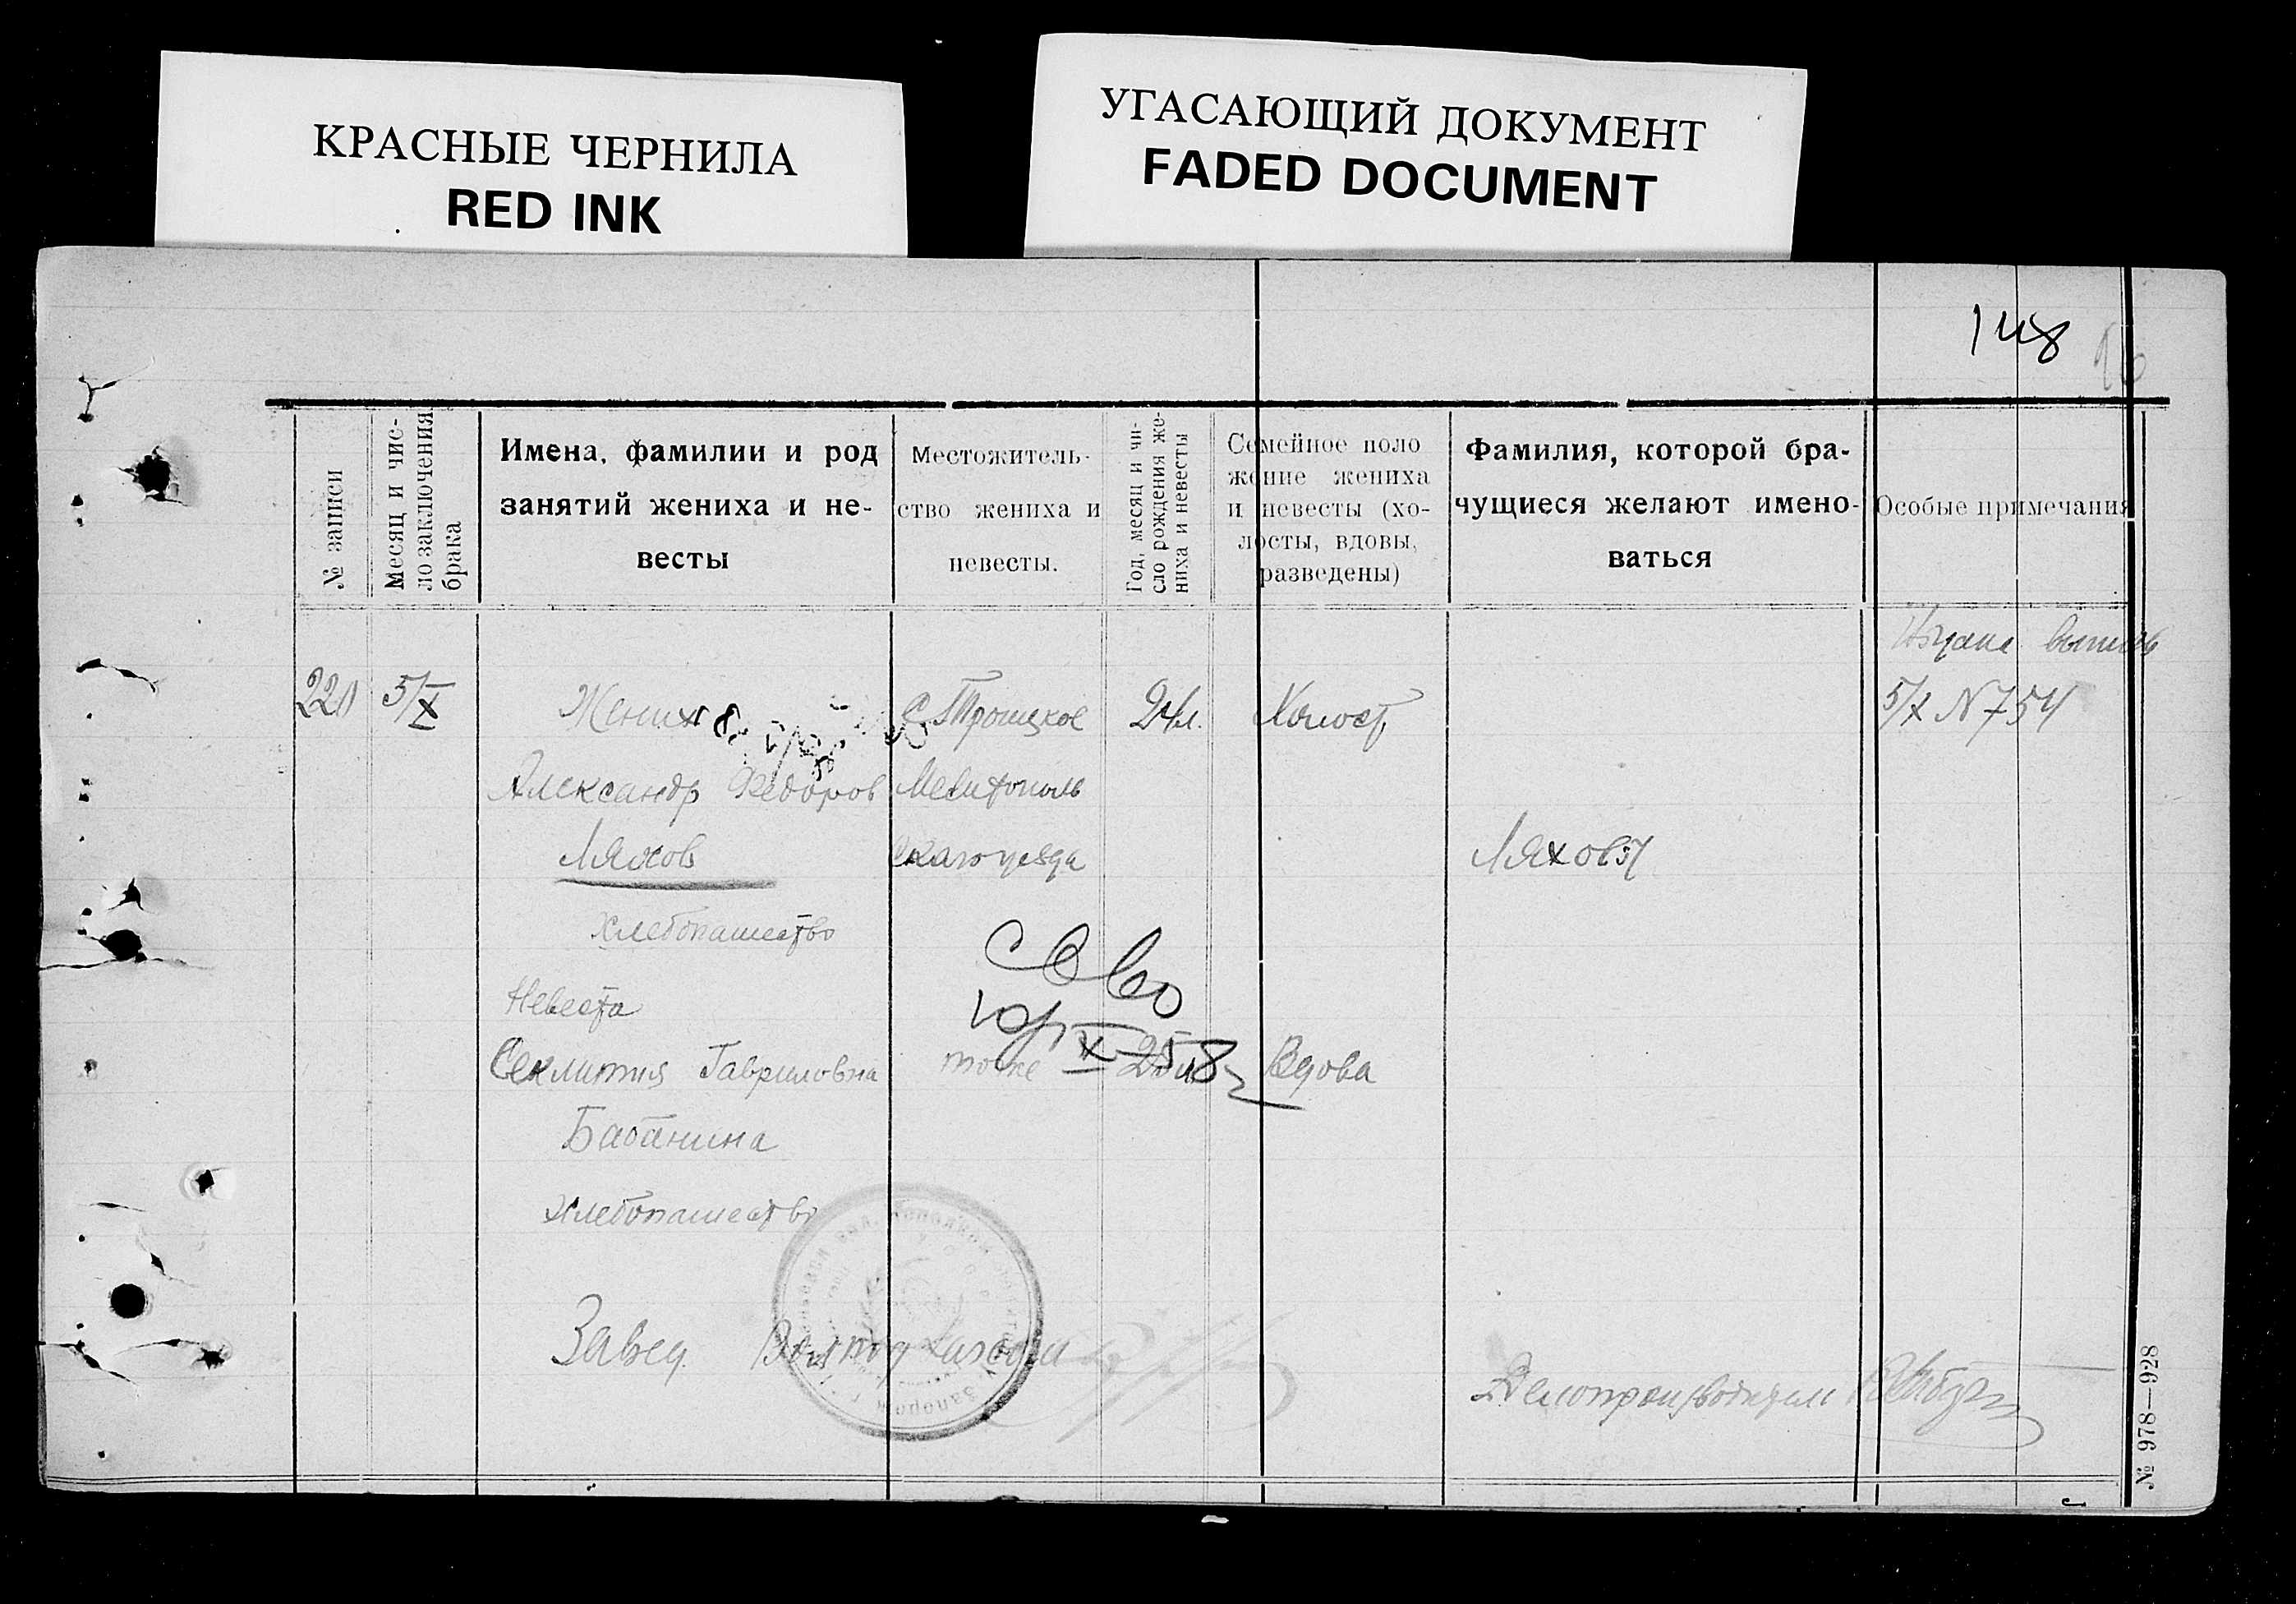 КРАСНЫЕ ЧЕРНИЛА
RED INK
УГАСАЮЩИЙ ДОКУМЕНТ
FADED DOCUMENT
148
№ записи
Месяц и чис-
ло заключения
брака
Имена, фамилии и род
занятий жениха и не-
весты
Местожитель-
ство жениха и
невесты.
Год, месяц и чи-
сло рождения же-
ниха и невесты
Семейное поло
жение жениха
и невесты (хо-
лосты, вдовы,
разведены)
Фамилия, которой бра-
чущиеся желают имено-
ваться
Особые примечания
220
5/X
Жених
Александр Федоров
Ляхов
хлебопашество
с Троицкое
Мелитополь
ского уезда
24л.
Холост
Ляховы
выпись
5/X N 754
Св во
10/X 58г
Невеста
Секлития Гавриловна
Бабанина
хлебопашество
тоже
Вдова
Завед.
Делопроизводитель
№ 978—928